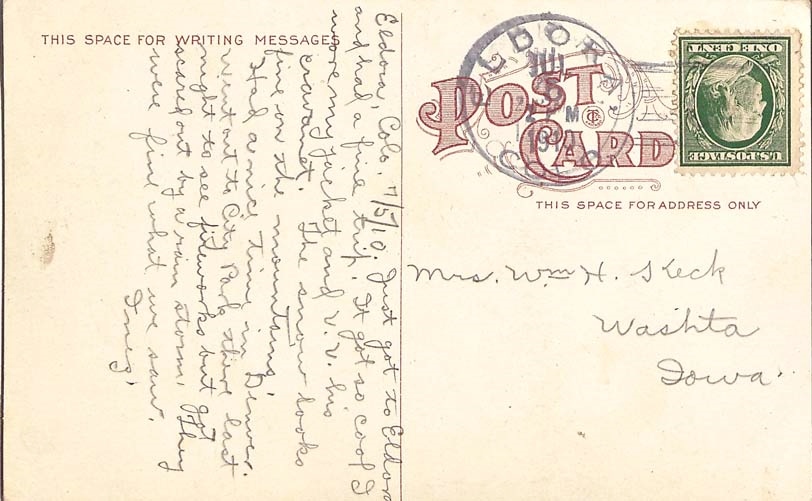 THIS SPACE FOR WRITING MESSAGES
Eldora, Colo. 7/5/10. Just got to Eldora
and had a fine trip. It got so cool I
wore my jacket and V.V. his
cravanet. The snow looks
fine on the mountains.
Had a nice time in Denver.
Went out to City Park there last
night to see fireworks but got
scared out by a rain storm. They
were fine what we saw.
Inez.
ELDORA
JUL
5
2 PM
1910
COLO
POST
CARD
ONE CENT
U.S. POSTAGE
THIS SPACE FOR ADDRESS ONLY
Mrs. Wm H. Keck
Washta
Iowa.